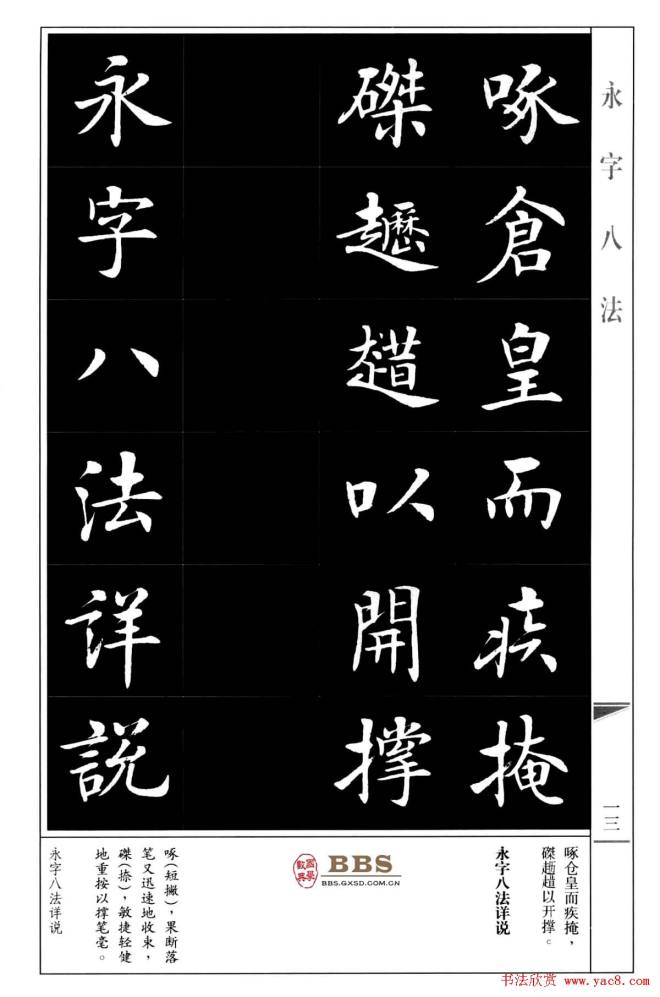 永字八法
一三
啄倉皇而疾掩
磔趞以開撑
永字八法詳説
啄仓皇而疾掩，
磔趞以开撑。
永字八法详说
BBS
BBS.GXSD.COM.CN
啄（短撇），果断落
笔又迅速地收束，
磔（捺），敏捷轻健
地重按以撑笔毫。
永字八法详说
书法欣赏 www.yac8.com